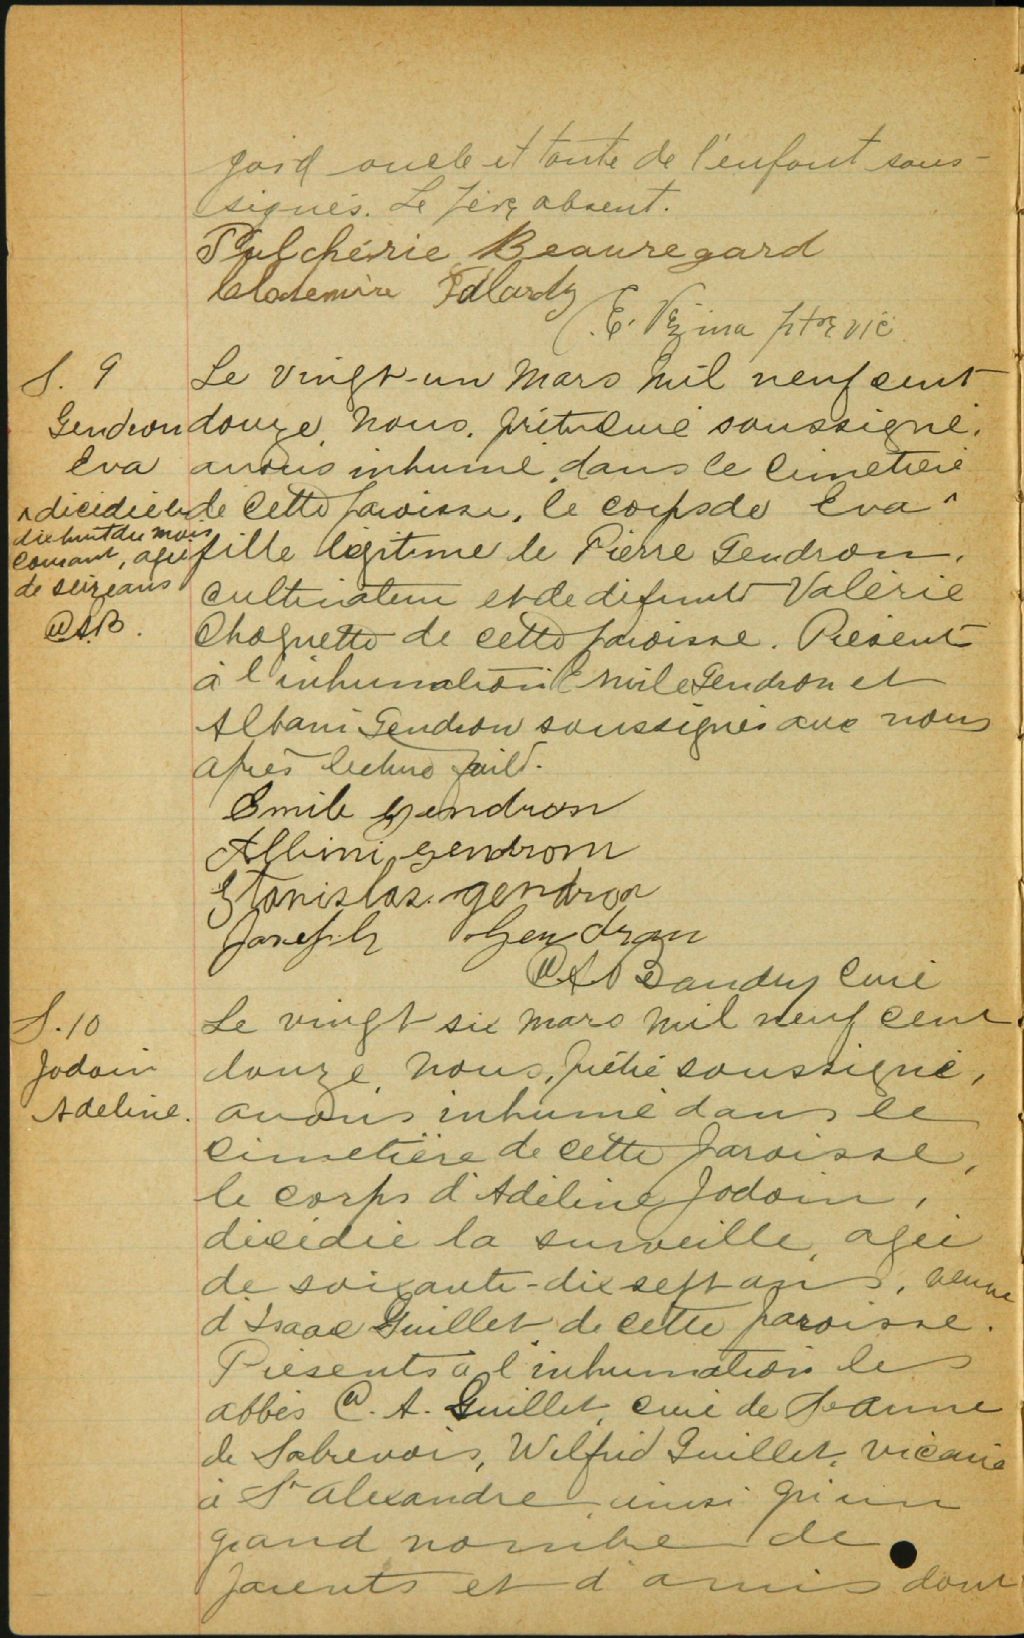 gard oncle et tante de l'enfant sous-
signés. Le père absent.
Pulchérie Beauregard
Clodemire Allard
E. Vézina ptre vic.
S. 9
Gendron
Eva
^ décédée le
dix huit du mois
courant, agée
de seize ans
C.A.B.
Le vingt-un mars mil neuf cent
douze, nous, prêtre curé soussigné,
avons inhumé dans le cimetière
de cette paroisse, le corps de Eva ^
fille légitime de Pierre Gendron,
cultivateur et de défunte Valérie
Choquette de cette paroisse. Présents
à l'inhumation Emile Gendron et
Albani Gendron soussignés avec nous
après lecture faite.
Emile Gendron
Albini gendron
Stanislas gendron
Joseph Gendron
Baudry curé
S. 10
Jodoin
Adeline.
Le vingt six mars mil neuf cent
douze, nous, prêtre soussigné,
avons inhumé dans le
cimetière de cette paroisse,
le corps d'Adéline Jodoin,
décédée la surveille, agée
de soixante-dix sept ans, veuve
d'Isaac Guillet de cette paroisse.
Présents à l'inhumation les
abbés C. A. Guillet, curé de Ste Anne
de Sabrevois, Wilfrid Guillet, vicaire
à St Alexandre, ainsi qu'un
grand nombre de
parents et d'amis dont